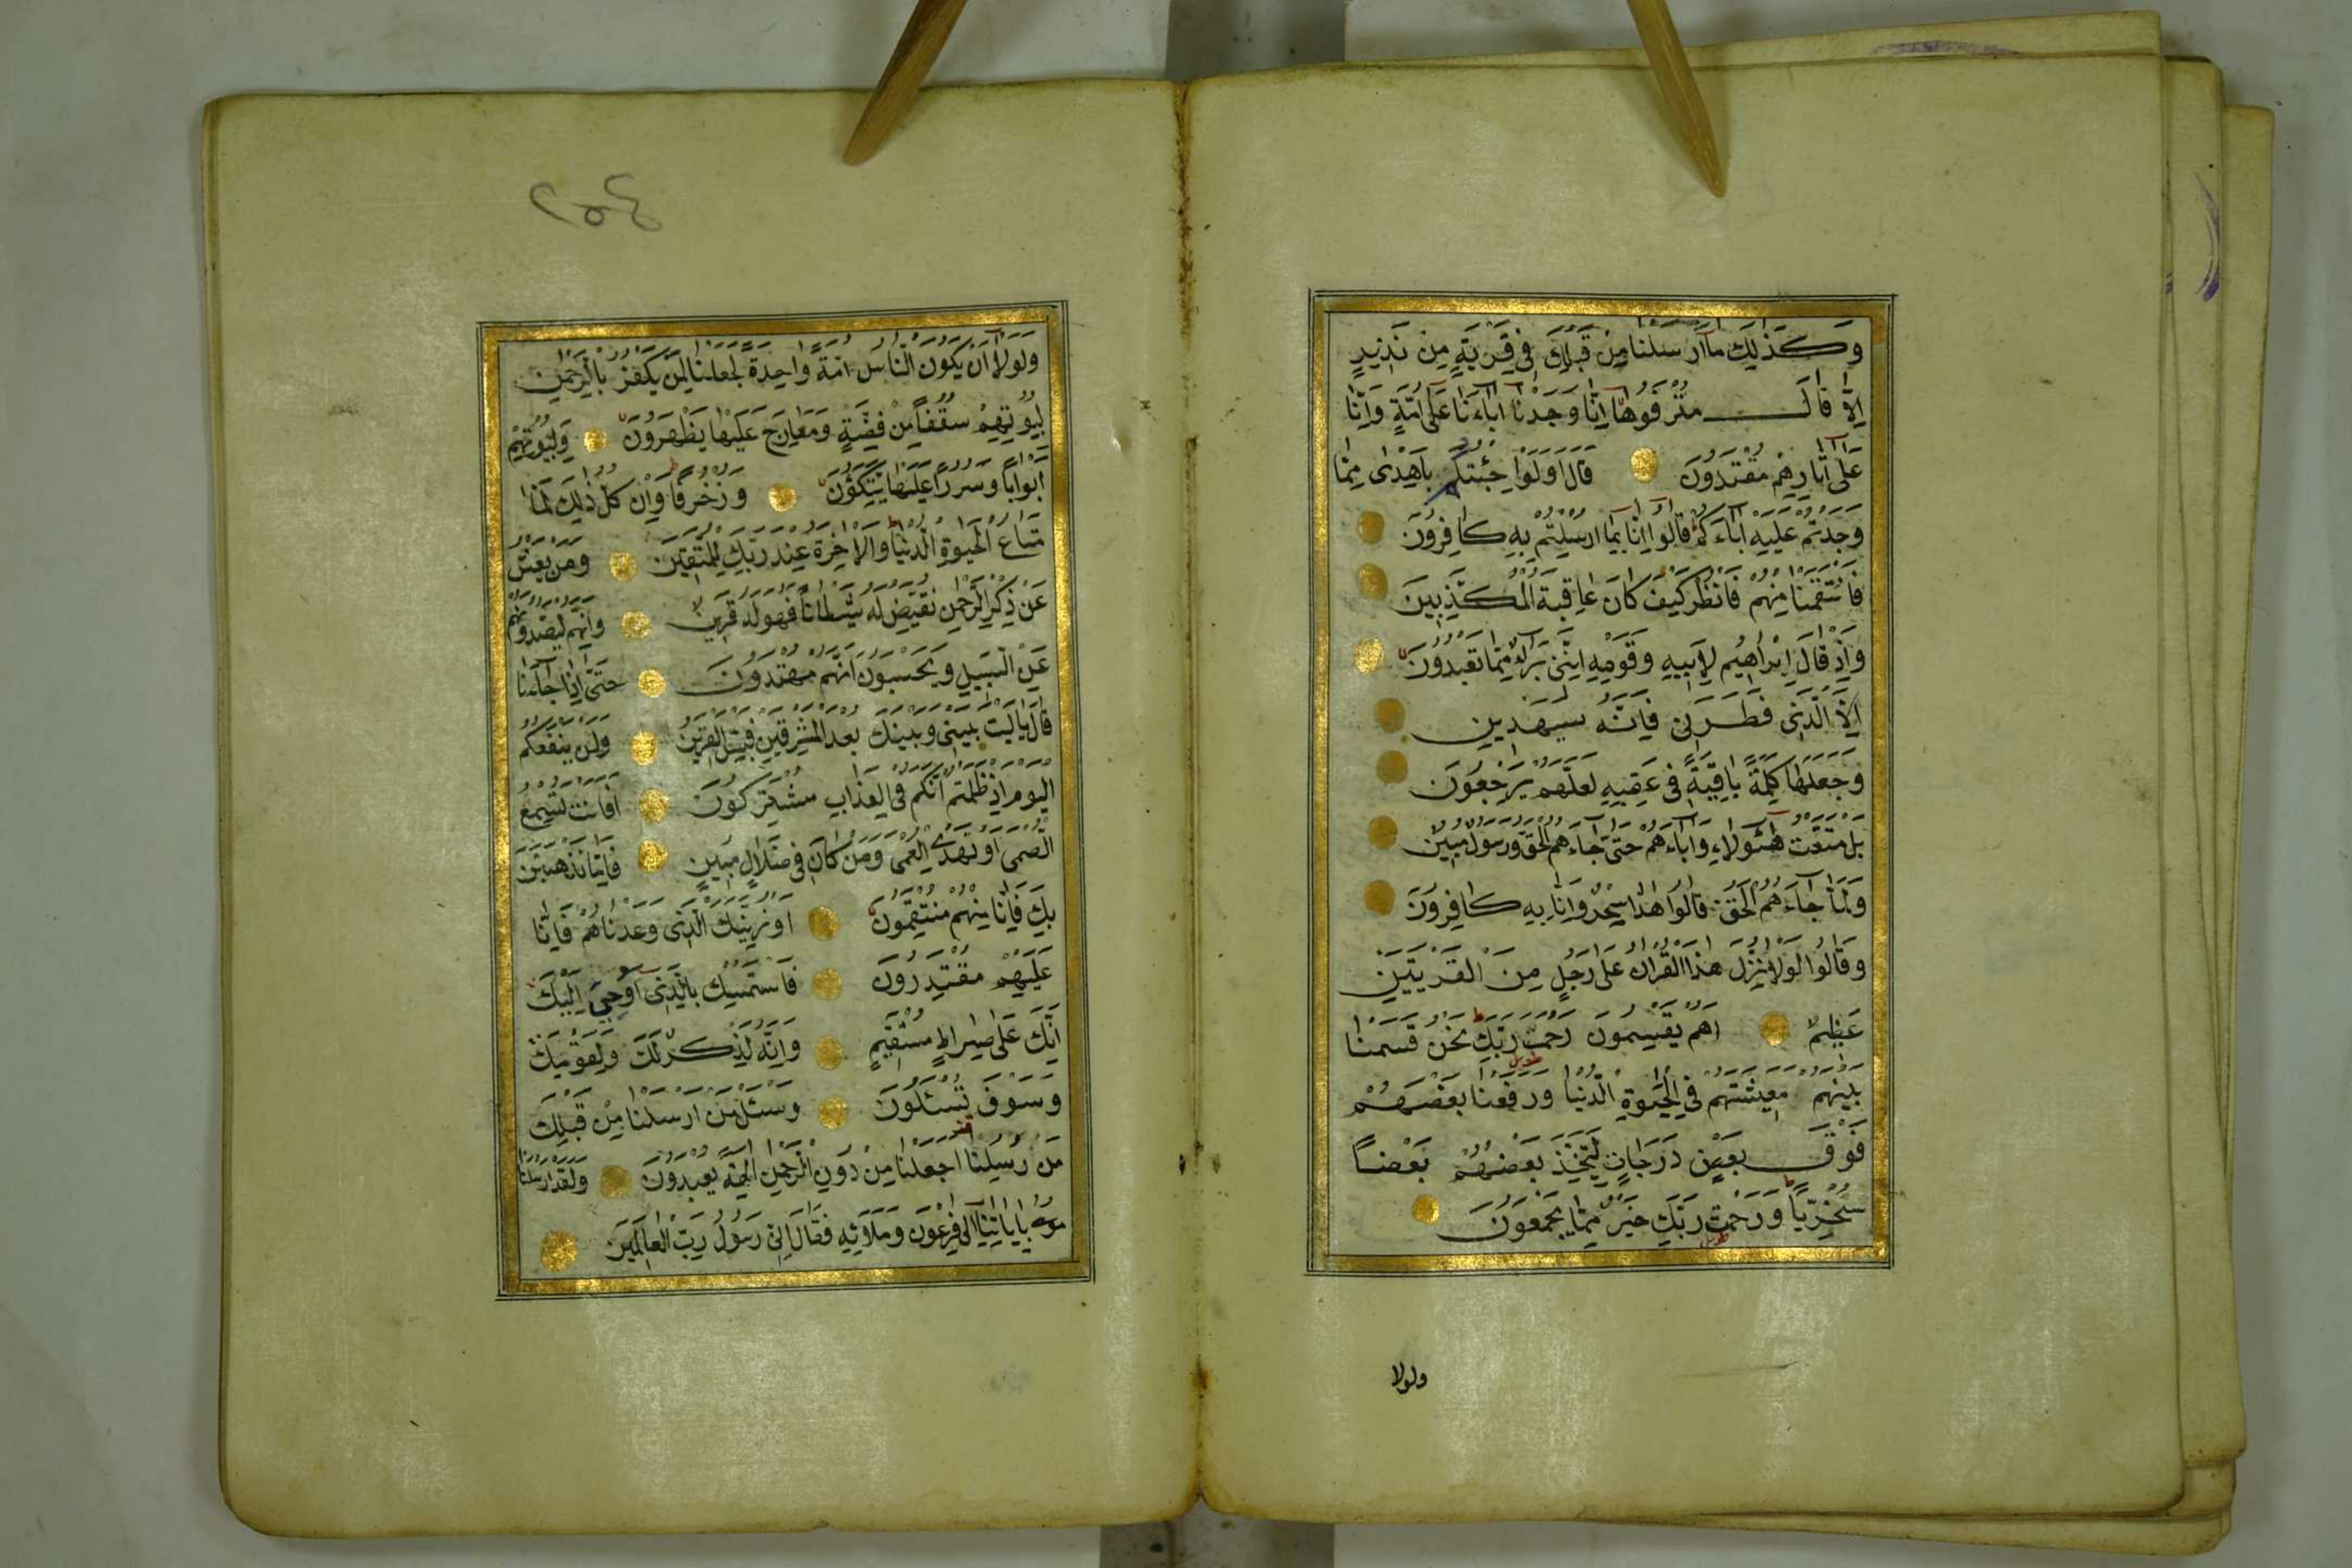 وَكَذٰلِكَ مَا اَرْسَلْنَا مِنْ قَبْلِكَ فِي قَرْيَةٍ مِنْ نَذِيرٍ
اِلَّا قَالَ مُتْرَفُوهَا اِنَّا وَجَدْنَا اٰبَاءَنَا عَلٰى اُمَّةٍ وَاِنَّا
عَلٰى اٰثَارِهِمْ مُقْتَدُونَ قَالَ اَوَلَوْ جِئْتُكُمْ بِاَهْدٰى مِمَّا
وَجَدْتُمْ عَلَيْهِ اٰبَاءَكُمْ قَالُوا اِنَّا بِمَا اُرْسِلْتُمْ بِهِ كَافِرُونَ
فَانْتَقَمْنَا مِنْهُمْ فَانْظُرْ كَيْفَ كَانَ عَاقِبَةُ الْمُكَذِّبِينَ
وَاِذْ قَالَ اِبْرَاهِيمُ لِاَبِيهِ وَقَوْمِهِ اِنَّنِي بَرَاءٌ مِمَّا تَعْبُدُونَ
اِلَّا الَّذِي فَطَرَنِي فَاِنَّهُ سَيَهْدِينِ
وَجَعَلَهَا كَلِمَةً بَاقِيَةً فِي عَقِبِهِ لَعَلَّهُمْ يَرْجِعُونَ
بَلْ مَتَّعْتُ هٰؤُلَاءِ وَاٰبَاءَهُمْ حَتّٰى جَاءَهُمُ الْحَقُّ وَرَسُولٌ مُبِينٌ
وَلَمَّا جَاءَهُمُ الْحَقُّ قَالُوا هٰذَا سِحْرٌ وَاِنَّا بِهِ كَافِرُونَ
وَقَالُوا لَوْلَا نُزِّلَ هٰذَا الْقُرْاٰنُ عَلٰى رَجُلٍ مِنَ الْقَرْيَتَيْنِ
عَظِيمٍ اَهُمْ يَقْسِمُونَ رَحْمَتَ رَبِّكَ نَحْنُ قَسَمْنَا
طويل
بَيْنَهُمْ مَعِيشَتَهُمْ فِي الْحَيٰوةِ الدُّنْيَا وَرَفَعْنَا بَعْضَهُمْ
فَوْقَ بَعْضٍ دَرَجَاتٍ لِيَتَّخِذَ بَعْضُهُمْ بَعْضًا
سُخْرِيًّا وَرَحْمَتُ رَبِّكَ خَيْرٌ مِمَّا يَجْمَعُونَ
طويل
ولولا
٢٥٤
وَلَوْلَا اَنْ يَكُونَ النَّاسُ اُمَّةً وَاحِدَةً لَجَعَلْنَا لِمَنْ يَكْفُرُ بِالرَّحْمٰنِ
لِبُيُوتِهِمْ سُقُفًا مِنْ فِضَّةٍ وَمَعَارِجَ عَلَيْهَا يَظْهَرُونَ وَلِبُيُوتِهِمْ
اَبْوَابًا وَسُرُرًا عَلَيْهَا يَتَّكِؤُنَ وَزُخْرُفًا وَاِنْ كُلُّ ذٰلِكَ لَمَّا
مَتَاعُ الْحَيٰوةِ الدُّنْيَا وَالْاٰخِرَةُ عِنْدَ رَبِّكَ لِلْمُتَّقِينَ وَمَنْ يَعْشُ
عَنْ ذِكْرِ الرَّحْمٰنِ نُقَيِّضْ لَهُ شَيْطَانًا فَهُوَ لَهُ قَرِينٌ وَاِنَّهُمْ لَيَصُدُّونَهُمْ
عَنِ السَّبِيلِ وَيَحْسَبُونَ اَنَّهُمْ مُهْتَدُونَ حَتّٰى اِذَا جَاءَنَا
قَالَ يَا لَيْتَ بَيْنِي وَبَيْنَكَ بُعْدَ الْمَشْرِقَيْنِ فَبِئْسَ الْقَرِينُ وَلَنْ يَنْفَعَكُمُ
الْيَوْمَ اِذْ ظَلَمْتُمْ اَنَّكُمْ فِي الْعَذَابِ مُشْتَرِكُونَ اَفَاَنْتَ تُسْمِعُ
الصُّمَّ اَوْ تَهْدِي الْعُمْيَ وَمَنْ كَانَ فِي ضَلَالٍ مُبِينٍ فَاِمَّا نَذْهَبَنَّ
بِكَ فَاِنَّا مِنْهُمْ مُنْتَقِمُونَ اَوْ نُرِيَنَّكَ الَّذِي وَعَدْنَاهُمْ فَاِنَّا
عَلَيْهِمْ مُقْتَدِرُونَ فَاسْتَمْسِكْ بِالَّذِي اُوحِيَ اِلَيْكَ
اِنَّكَ عَلٰى صِرَاطٍ مُسْتَقِيمٍ وَاِنَّهُ لَذِكْرٌ لَكَ وَلِقَوْمِكَ
وَسَوْفَ تُسْئَلُونَ وَسْئَلْ مَنْ اَرْسَلْنَا مِنْ قَبْلِكَ
مِنْ رُسُلِنَا اَجَعَلْنَا مِنْ دُونِ الرَّحْمٰنِ اٰلِهَةً يُعْبَدُونَ وَلَقَدْ اَرْسَلْنَا
مُوسٰى بِاٰيَاتِنَا اِلٰى فِرْعَوْنَ وَمَلَا۬ئِهِ فَقَالَ اِنِّي رَسُولُ رَبِّ الْعَالَمِينَ